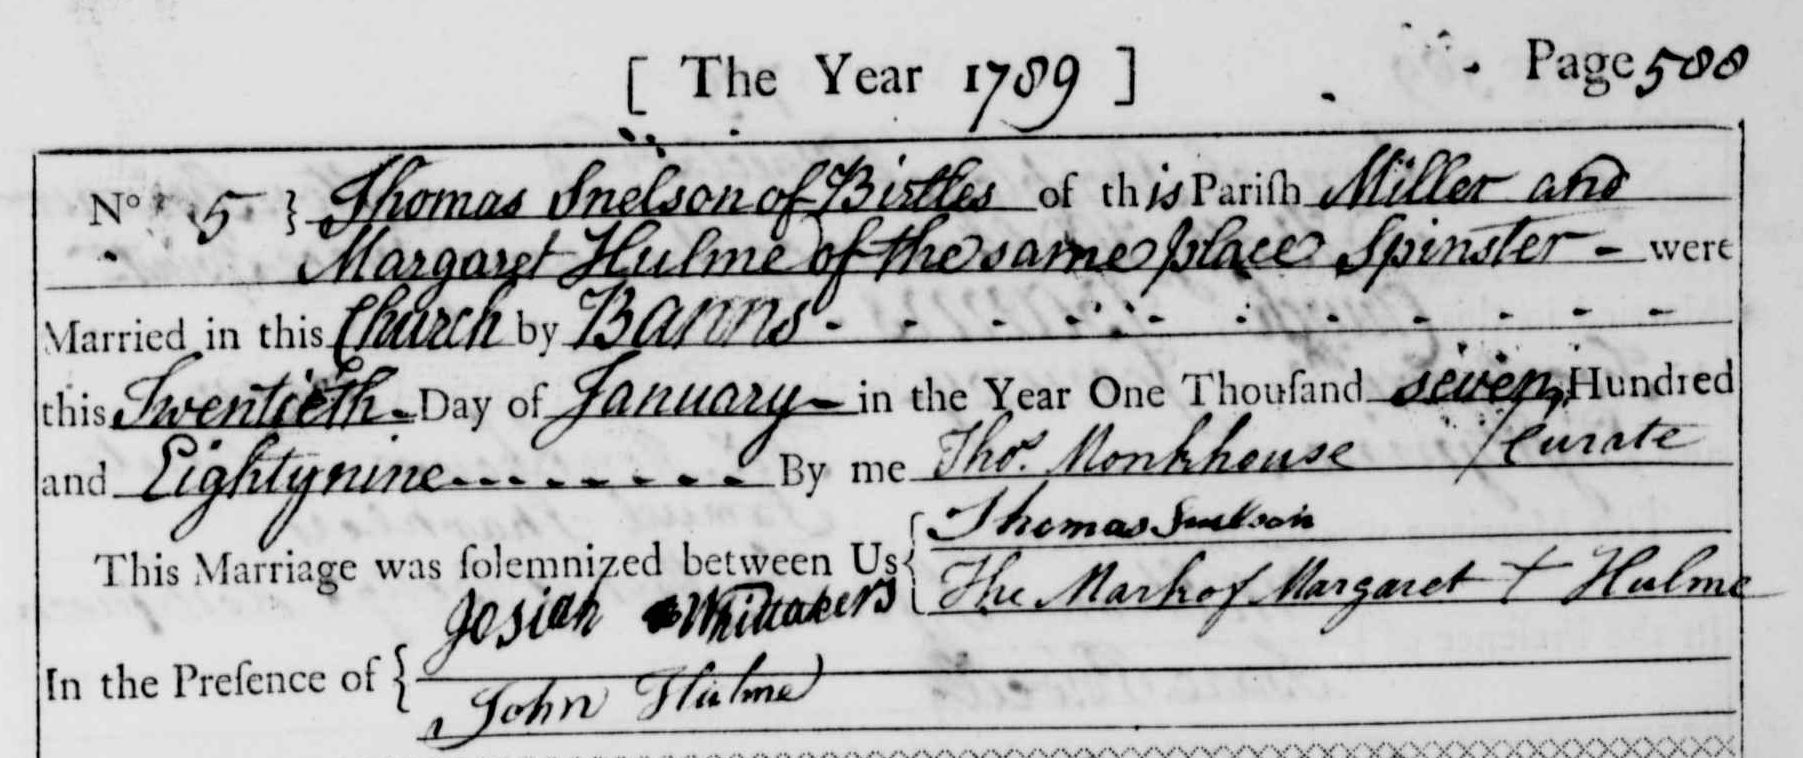 [ The Year 1789 ] Page 588
No 5 } Thomas Snelson of Birtles of this Pariſh Miller and
Margaret Hulme of the same place Spinster - were
Married in this Church by Banns - - - - - - - - - -
this Twentieth Day of January in the Year One Thouſand seven Hundred
and Eightynine - - - - - - - - By me Thos. Monkhouse / Curate
This Marriage was ſolemnized between Us { Thomas Snelson
The Mark of Margaret + Hulme
In the Preſence of { Josiah Whittakers
John Hulme